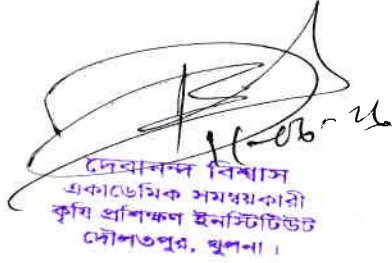 11-06-26
দেবানন্দ বিশ্বাস
একাডেমিক সমন্বয়কারী
কৃষি প্রশিক্ষণ ইনস্টিটিউট
দৌলতপুর, খুলনা।